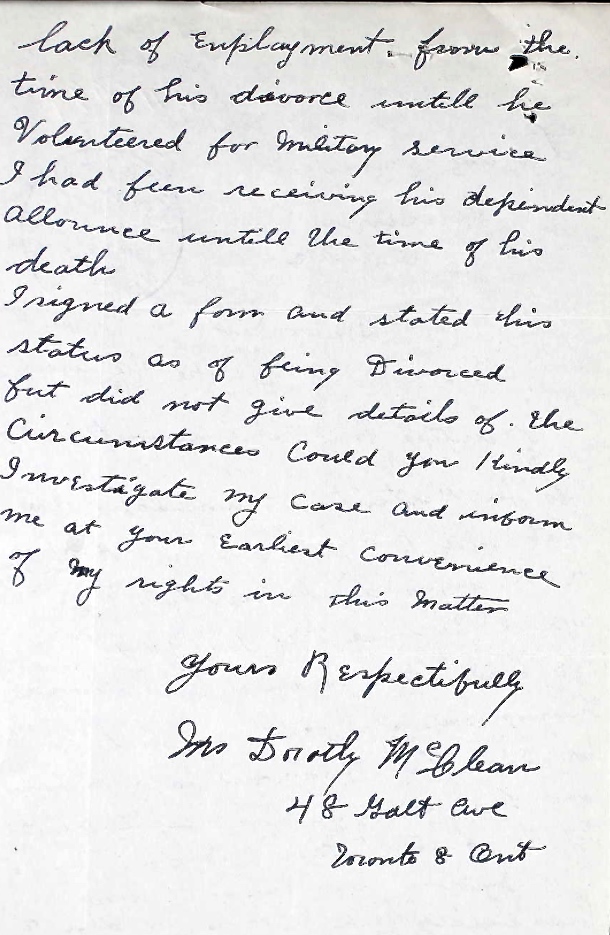 lack of Enployment. from the.
time of his divorce untill he
Volunteered for Military service
I had been receiving his dependent
Allownce untill the time of his
death
I signed a form and stated this
status as of being Divorced
but did not give details of. the
Circumstances Could you Kindly
Investigate my case and inform
me at your Earliest Convenience
of my rights in this Matter
Yours Respectifully
Mrs Dorothy McClean
48 Galt Ave
Toronto 8 Ont